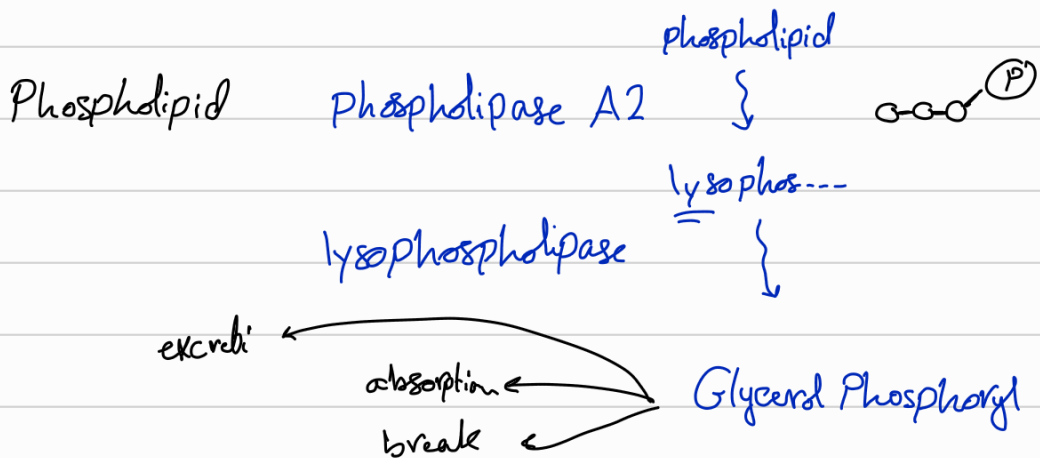 phospholipid
Phospholipid phospholipase A2 P
lysophos----
lysophospholipase
excreti
absorption
Glycerol Phosphoryl
break